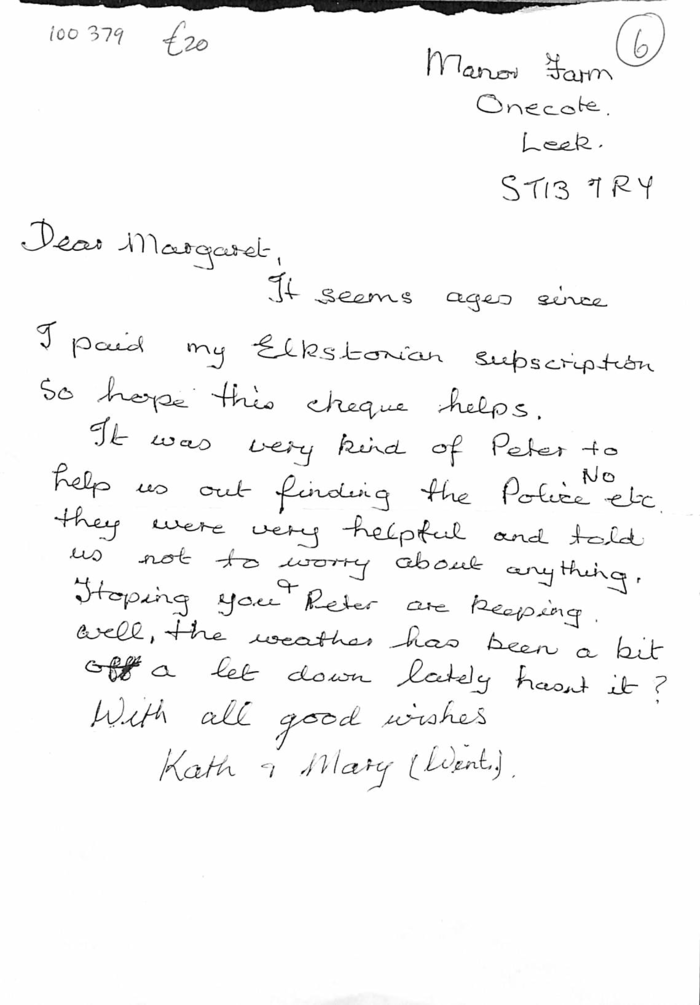 100 379 £20
6
Manor Farm
Onecote.
Leek.
ST13 7RY
Dear Margaret,
It seems ages since
I paid my Elkstonian subscription
So hope this cheque helps.
It was very kind of Peter to
help us out finding the Police No etc.
they were very helpful and told
us not to worry about anything.
Hoping you + Peter are keeping.
well, the weather has been a bit
off a let down lately hasnt it?
With all good wishes
Kath & Mary (Wint.).